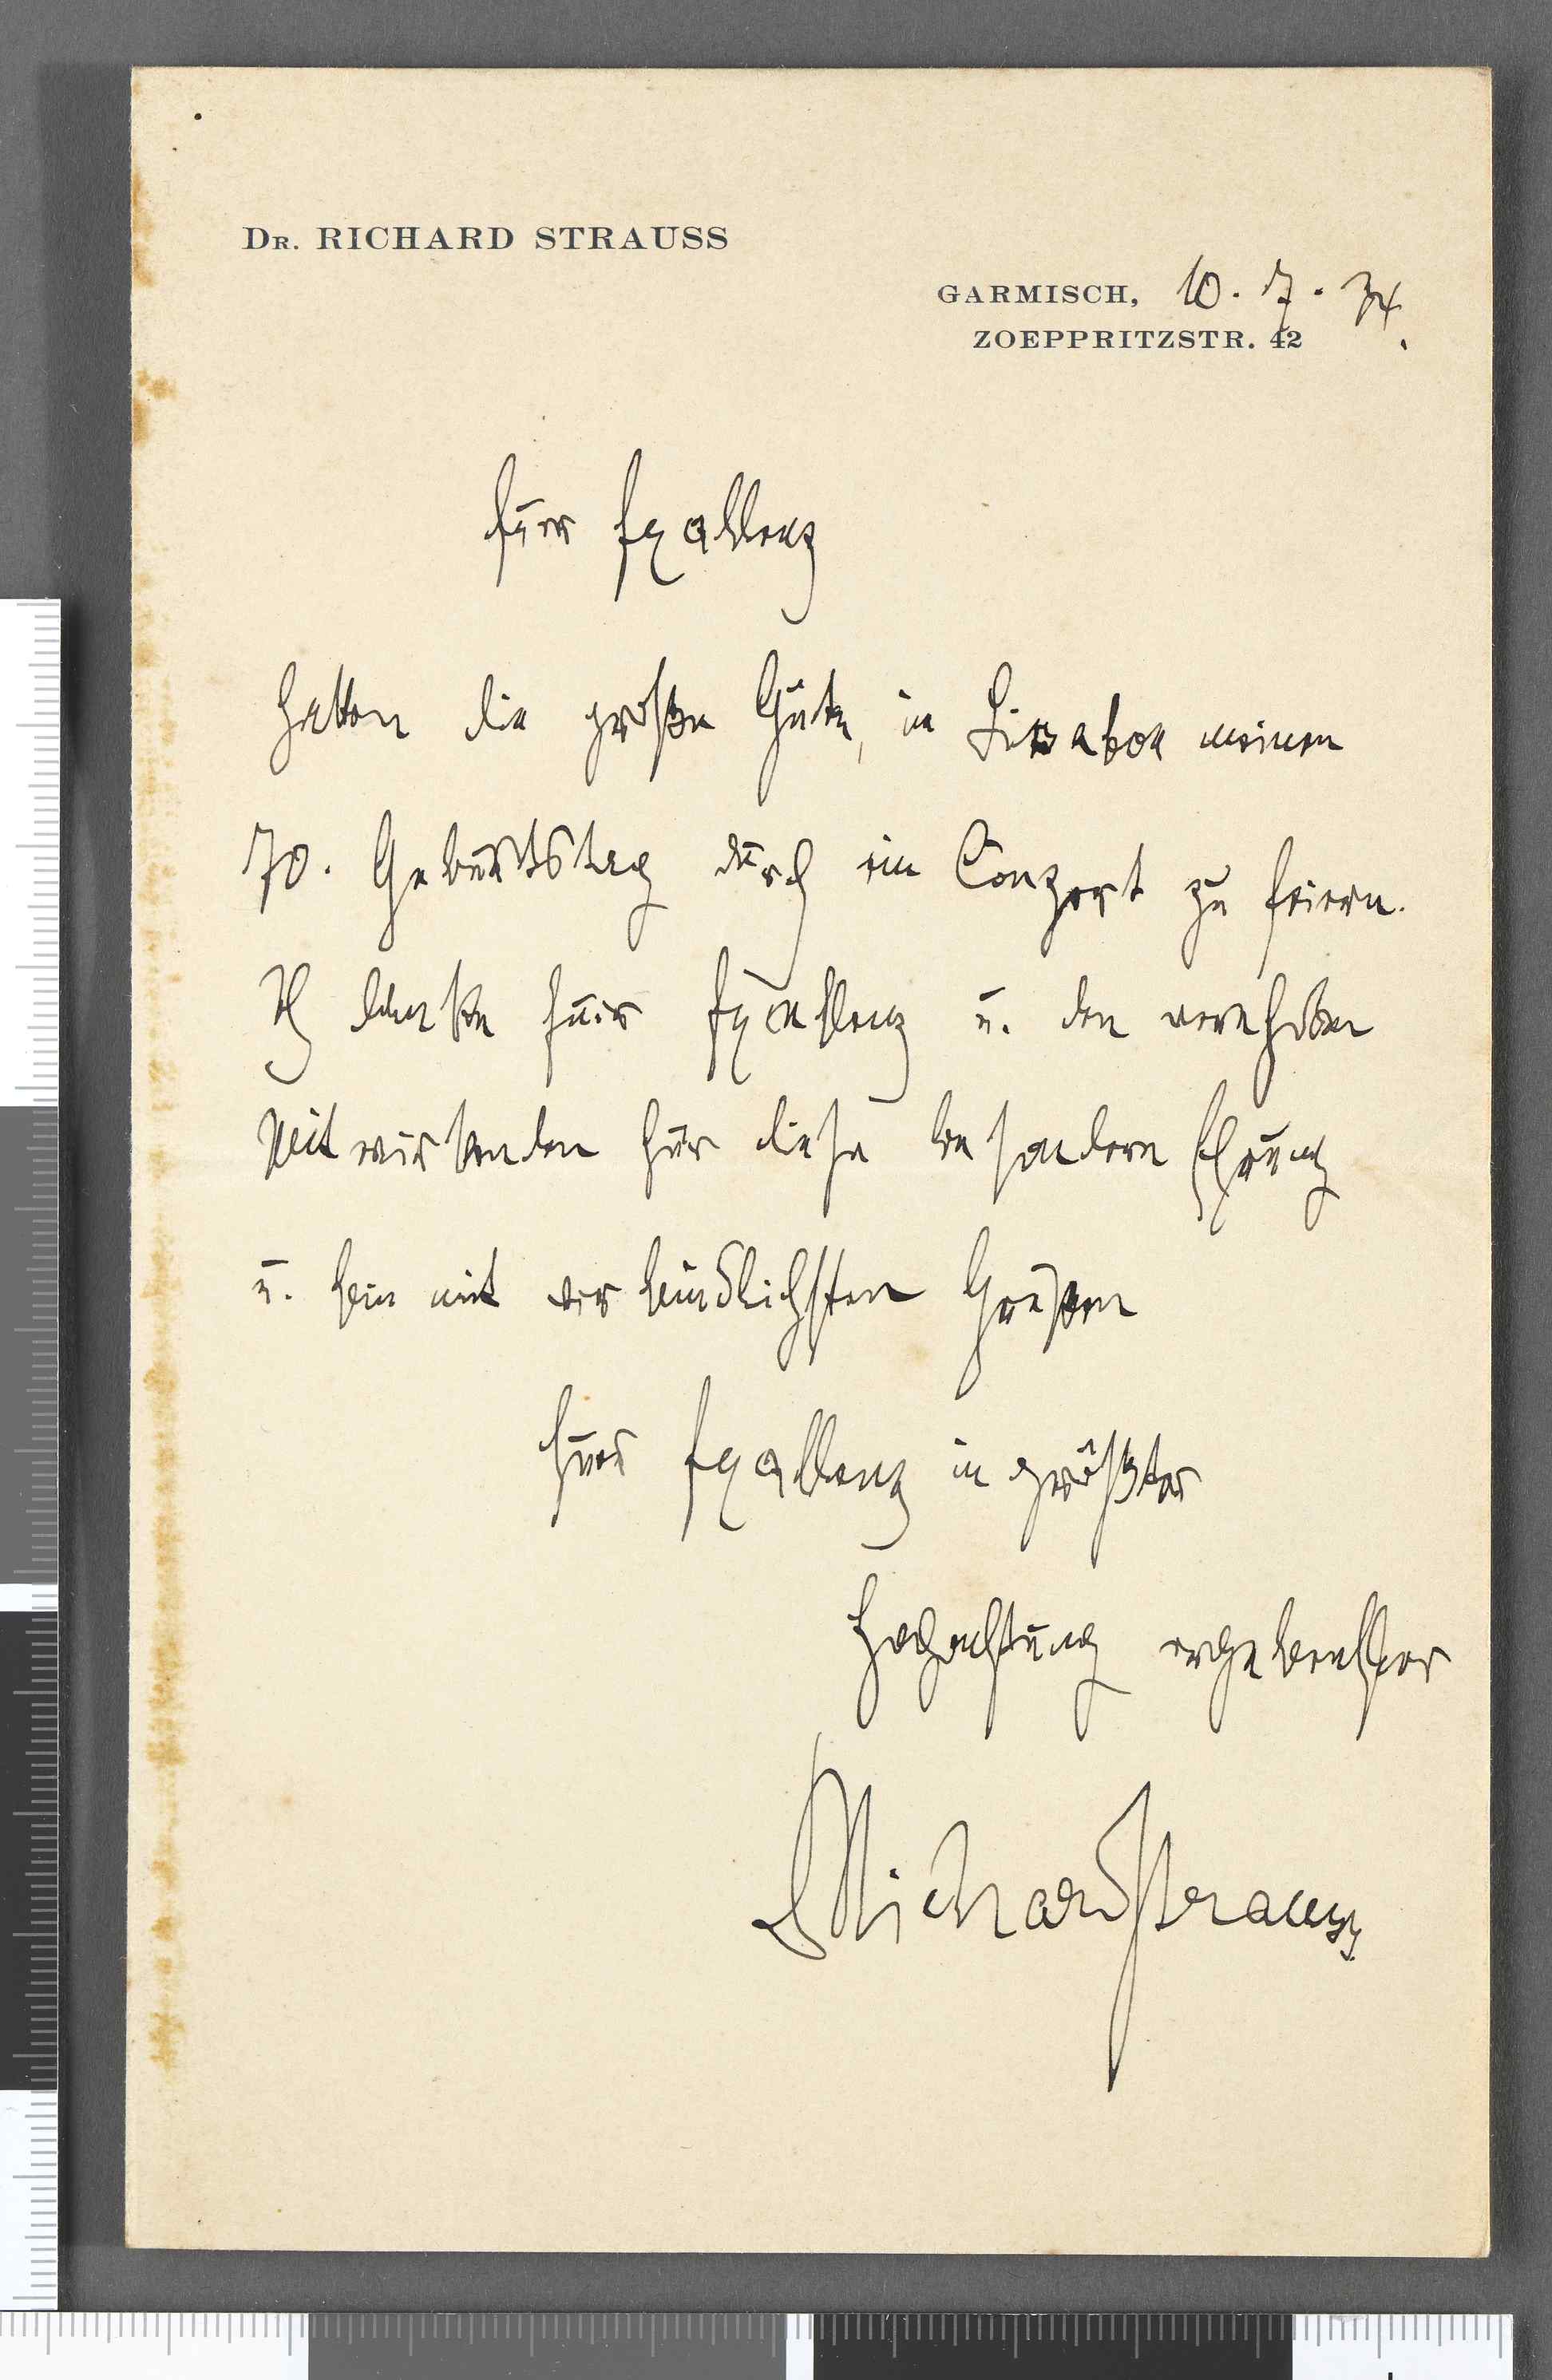 Dr. RICHARD STRAUSS
GARMISCH, 10. 7. 34.
ZOEPPRITZSTR. 42
Euer Exzellenz
hatten die große Güte, in Lissabon meinen
70. Geburtstag durch ein Conzert zu feiern.
Ich danke Euer Exzellenz u. den verehrten
Mitwirkenden für diese besondere Ehrung
u. bin mit verbindlichsten Grüßen
Euer Exzellenz in größter
Hochachtung ergebenster
Richard Strauss